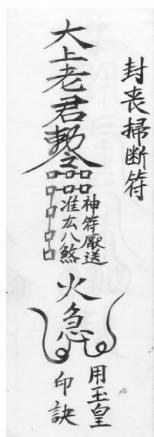 封喪掃断符
大上老君勅令
神符厭送
准広八煞
火急
用玉皇
印訣